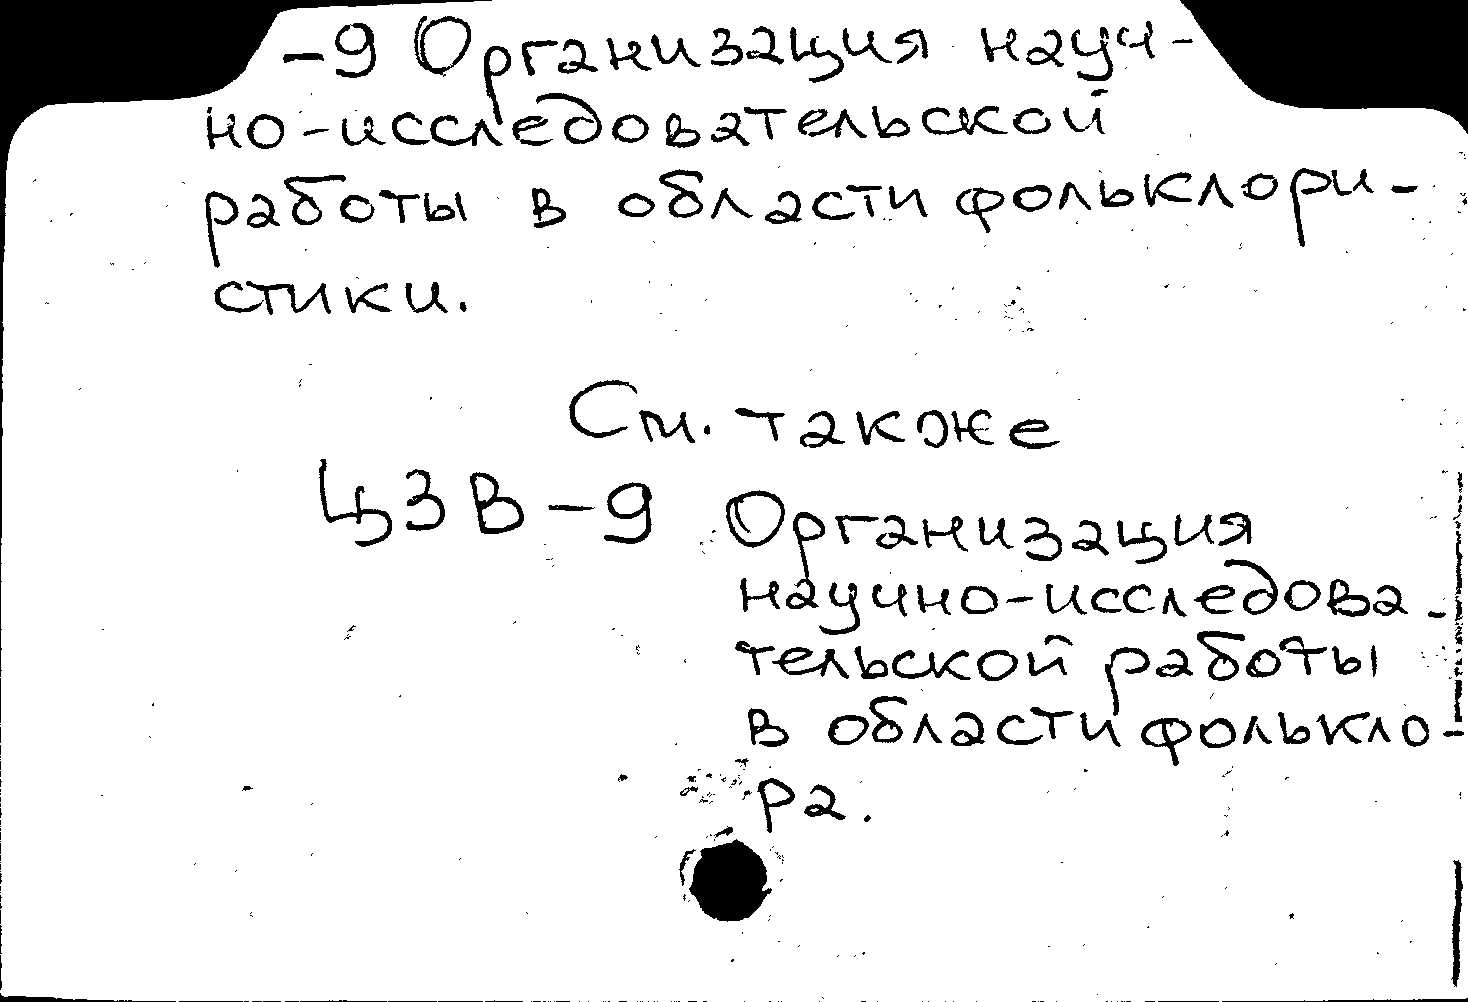 -9 Организация науч-
но-исследовательской
работы в области фольклори-
стики.
См. также
ЦЗВ-9 Организация
научно-исследова-
тельской работы
в области фолькло-
ра.